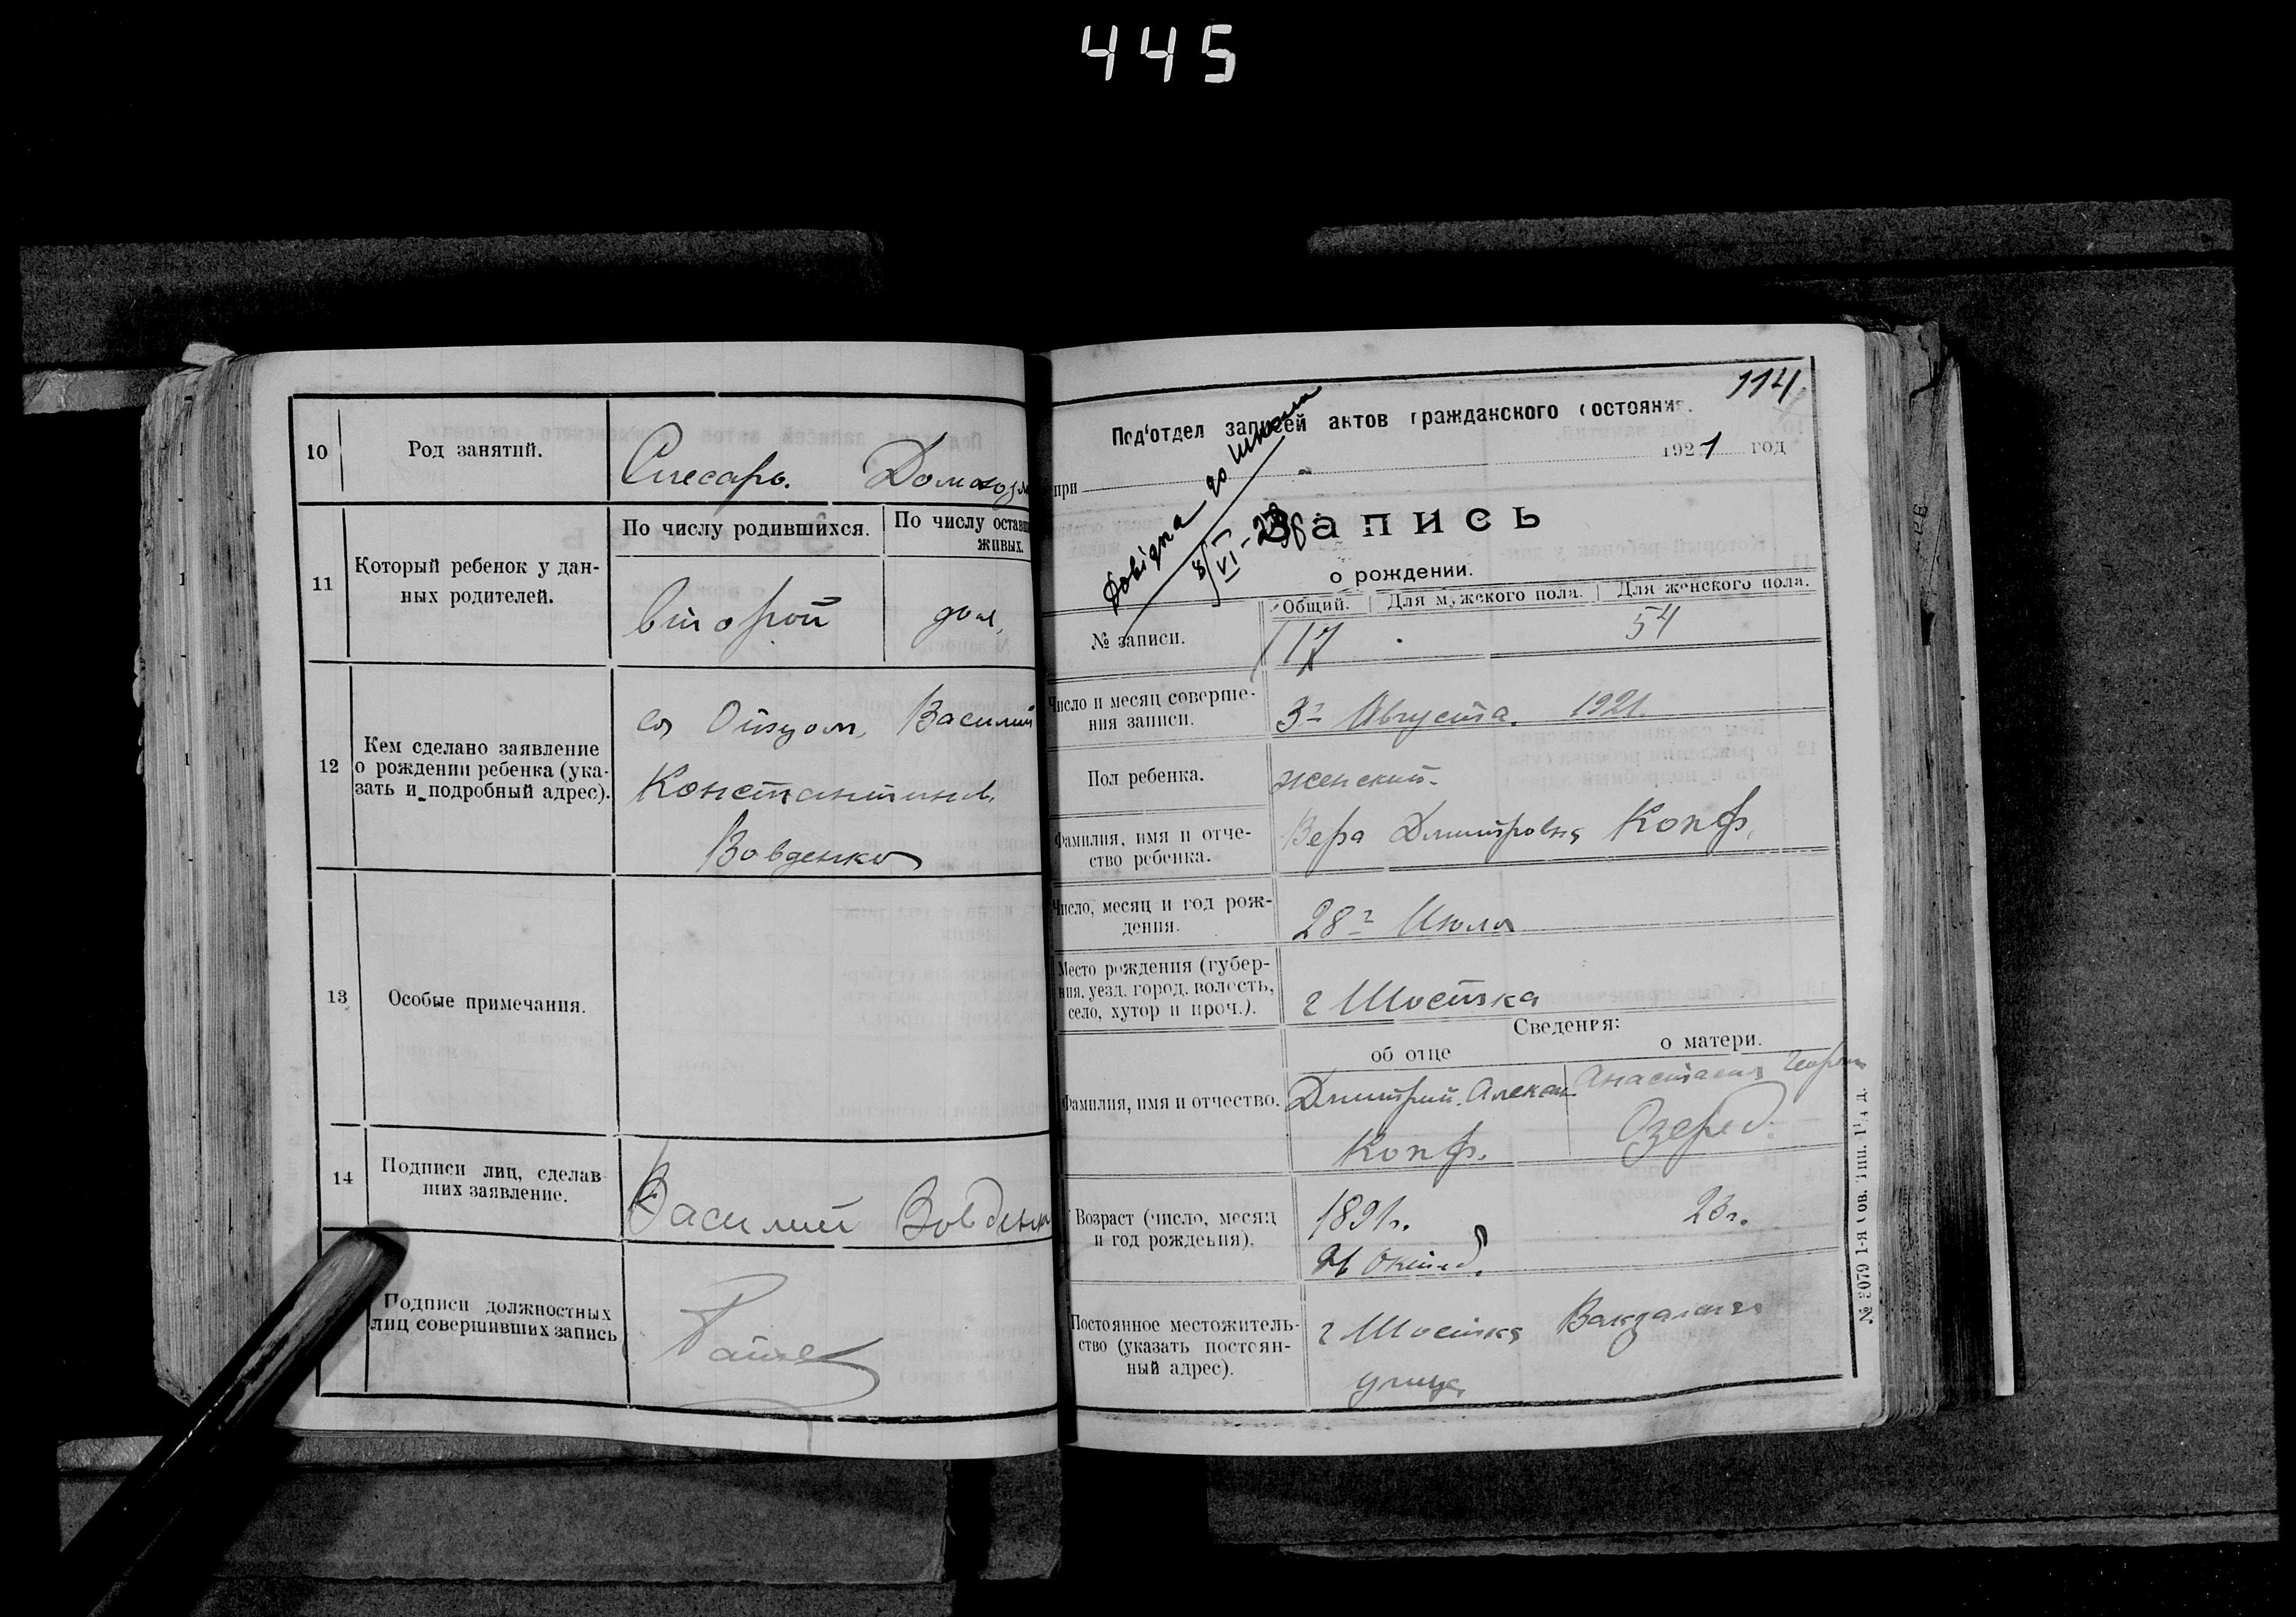 445
10
Род занятий.
Слесарь. Домохозя
11
Который ребенок у дан-
ных родителей.
По числу родившихся.
По числу оставш
живых.
второй
два,
12
Кем сделано заявление
о рождении ребенка (ука-
зать и подробный адрес).
Отцом, Василий
Константинов.
Вовденко
13
Особые примечания.
14
Подписи лиц, сделав-
ших заявление.
Василий Вовденко
Подписи должностных
лиц совершивших запись
114.
Под'отдел записей актов гражданского состояния.
при
1921 год
Довідка до школи
8/VI-29
Запись
о рождении.
№ записи.
Общий. Для мужского пола. Для женского пола.
117 54
Число и месяц соверше-
ния записи.
3го Августа. 1921.
Пол ребенка.
женский.
Фамилия, имя и отче-
ство ребенка.
Вера Дмитровна Копф.
Число, месяц и год рож-
дения.
28го Июля
Место рождения (губер-
ния, уезд, город, волость,
село, хутор и проч.).
г Шостка
Сведения:
об отце
о матери.
Фамилия, имя и отчество.
Дмитрий Алексан.
Копф.
Анастасия Георгиев
Озеред.
Возраст (число, месяц
и год рождения).
1891г.
26 Октяб.
23г.
Постоянное местожитель-
ство (указать постоян-
ный адрес).
г Шостка Вокзальная
улица,
№ 3079 1-я Сов. Тип.